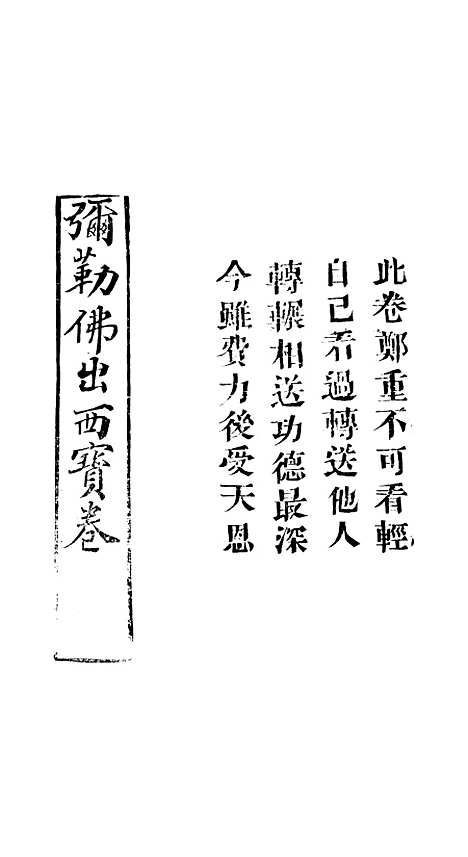 此卷鄭重不可看輕
自己看過轉送他人
轉輾相送功德最深
今雖費力後受天恩
彌勒佛出西寶卷